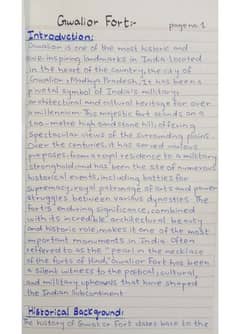 Gwalior Fort:-
page no 1
Introduction:
Gwalior is one of the most historic and
awe-inspiring landmarks in India. Located
in the heart of the country, the city of
Gwalior, Madhya Pradesh, It has been a
pivotal symbol of India's military,
architectural and cultural heritage for over
a millennium. This majestic fort stands on a
100-metre high sand stone hill, offering
spectacular views of the surronding plains.
Over the centuries, it has served various
preposes: from a royal residence to a military
stronghold and has been the site of numerous
historical events, including battles for
supremacy, royal patronage of arts and power
struggles between various dynasties. The
fort's enduring significance, combined
with its incredible architectural beauty
and historic role, makes it one of the most
important monuments in India. Often
referred to as the "pearl in the necklace
of the forts of Hind," Gwalior Fort has been
a silent witness to the political, cultural,
and military upheavals that have shaped
the Indian Subcontinent
Historical Background:
The history of Gwalior Fort dates back to the